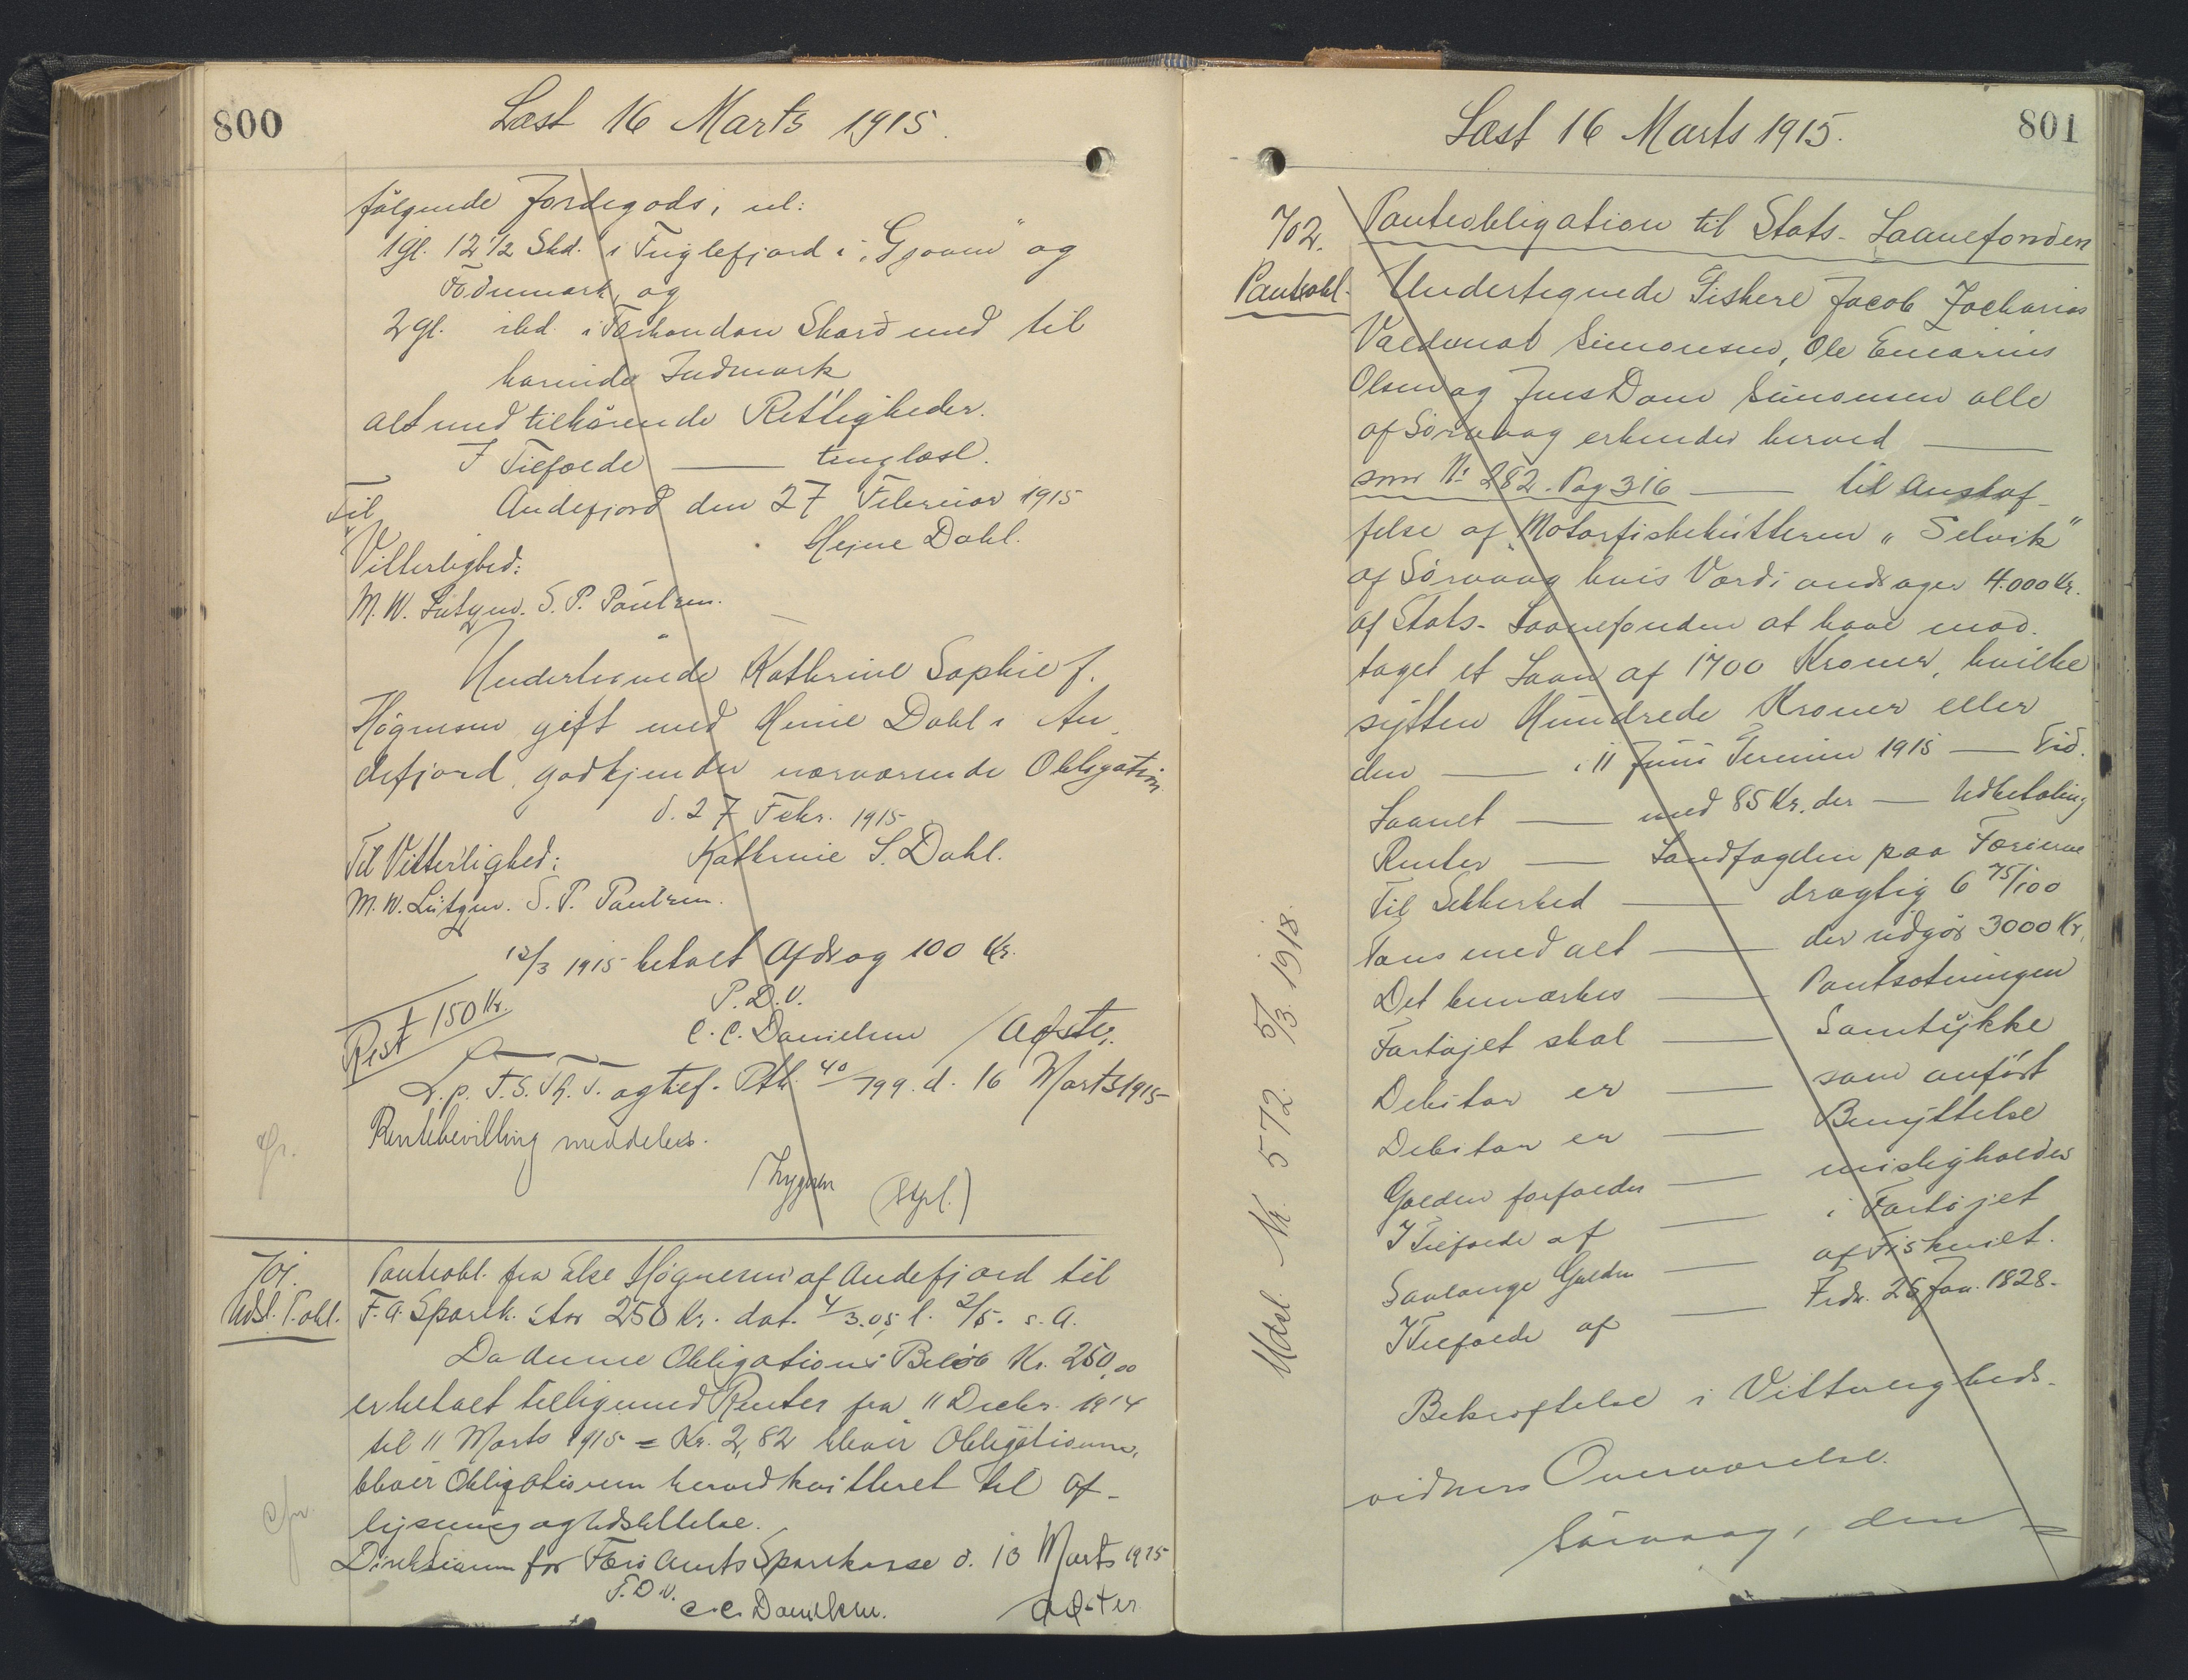 800
Læst 16 Marts 1915.
følgende Jordegods, nl:
1 gl. 12 1/2 Skd. i Fuglefjord i "Gjoanu" og
Fodnmark, og
2 gl. ibd. i Torkandon Skard med til
hørende Indmark
alt med tilhørende Rettigheder.
I Tilfælde — tinglæst.
Andefjord den 27 Februar 1915
Til
Heine Dahl.
Vitterlighed:
M. W. Lützen. S. P. Paulsen.
Undertegnede Kathrine Sophie f.
Høgnesen gift med Heine Dahl i An
defjord, godkjender nærværende Obligation
d. 27 Febr. 1915
Til Vitterlighed:
Kathrine S. Dahl.
M. W. Lützen. S. P. Paulsen.
12/3 1915 betalt Afdrag 100 Kr.
P. D. V.
Rest 150 Kr.
C. C. Danielsen / Agster.
L. p. T. S. Th. T. og tilf. Ptb. 40/799. d. 16 Marts 1915
Rentebevilling meddeles.
Thygesen (Stpl.)
701.
Udsl. P. obl.
Pantobl. fra Else Høgnesen af Andefjord til
F. A. Spark. stor 250 Kr. dat. 4/3.05, l. 2/5. s. A.
Da denne Obligations Beløb Kr. 250,00
er betalt tilligemed Renter fra 11 Decbr. 1914
til 11 Marts 1915 = Kr. 2,82 bliver Obligationen,
bliver Obligationen herved kvitteret til Af-
lysning og Udslettelse.
Direktionen for Færø Amts Sparekasse d. 13 Marts 1915
P. D. V.
C. C. Danielsen. Agster
801
Læst 16 Marts 1915.
702.
Pantobl.
Panteobligation til Stats-Laanefonden
Undertegnede Fiskere Jacob Zacharias
Valdemar Simonsen, Ole Emarius
Olsen og Jens Dam Simonsen alle
af Sørvaag erkender herved —
som No 282. Pag 316 — til Anskaf-
felse af Motorfiskekutteren "Selvik"
af Sørvaag hvis Værdi andrager 4.000 Kr.
af Stats-Laanefonden at have mod-
taget et Laan af 1700 Kroner, hvilke
sytten Hundrede Kroner eller
den — i 11 Juni Termin 1915 — Tid.
Laanet — med 85 Kr. der — Udbetaling
Renter — Landfogden paa Færøerne
Til Sikkerhed — drægtig 6 75/100
Tons med alt — der udgør 3000 Kr.
Det bemærkes — Pantsætningen
Fartøjet skal — Samtykke
Debitor er — som anført
Debitor er — Benyttelse
Gælden forfalder — misligholdes
I Tilfælde af — i Fartøjet
Saalænge Gælden — af Fiskeriet.
I Tilfælde af — Frdn. 25 Jan. 1828.
Bekræftelse i Vitterligheds-
vidners Overværelse.
Sørvaag, den
Udsl. Nr. 572. 5/3. 1918.